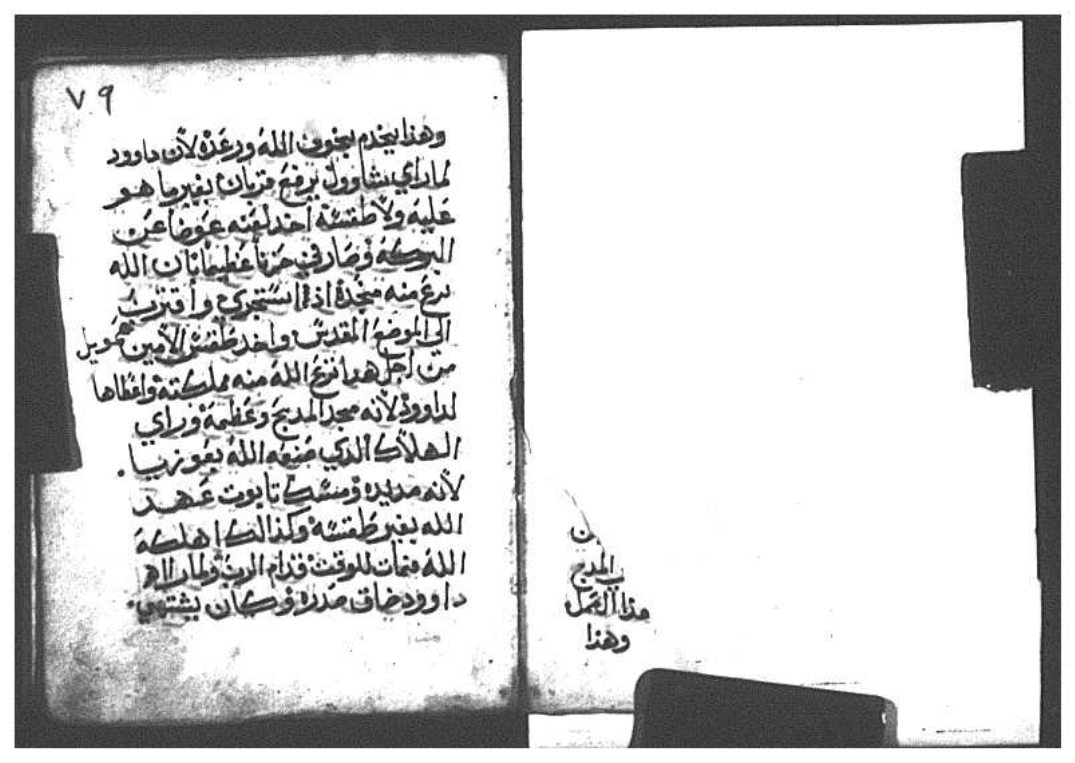 ن
ب المدبح
هذا العمل
وهذا
٧٩
وهذا يخدم بخوف الله ورعده لان داوود
لما راي بشاوول يرفع قربان بغير ما هو
عليه ولا طقسه اخد لعنه عوضا عن
البركه وصار في حزنا عظيما بان الله
نزع منه مجده اذ استجري واقترب
الي الموضع المقدس واخد طقس الامين صمويل
من اجل هدا نزع الله منه مملكته واعطاها
لداوود لانه مجد المدبح وعظمه وراي
الهلاك الدي صنعه الله بعوزيا
لانه مد يده ومسك تابوت عهد
الله بغير طقسه وكذالك اهلكه
الله فمات للوقت قدام الرب ولما راا
داوود ضاق صدره وكان يشتهي